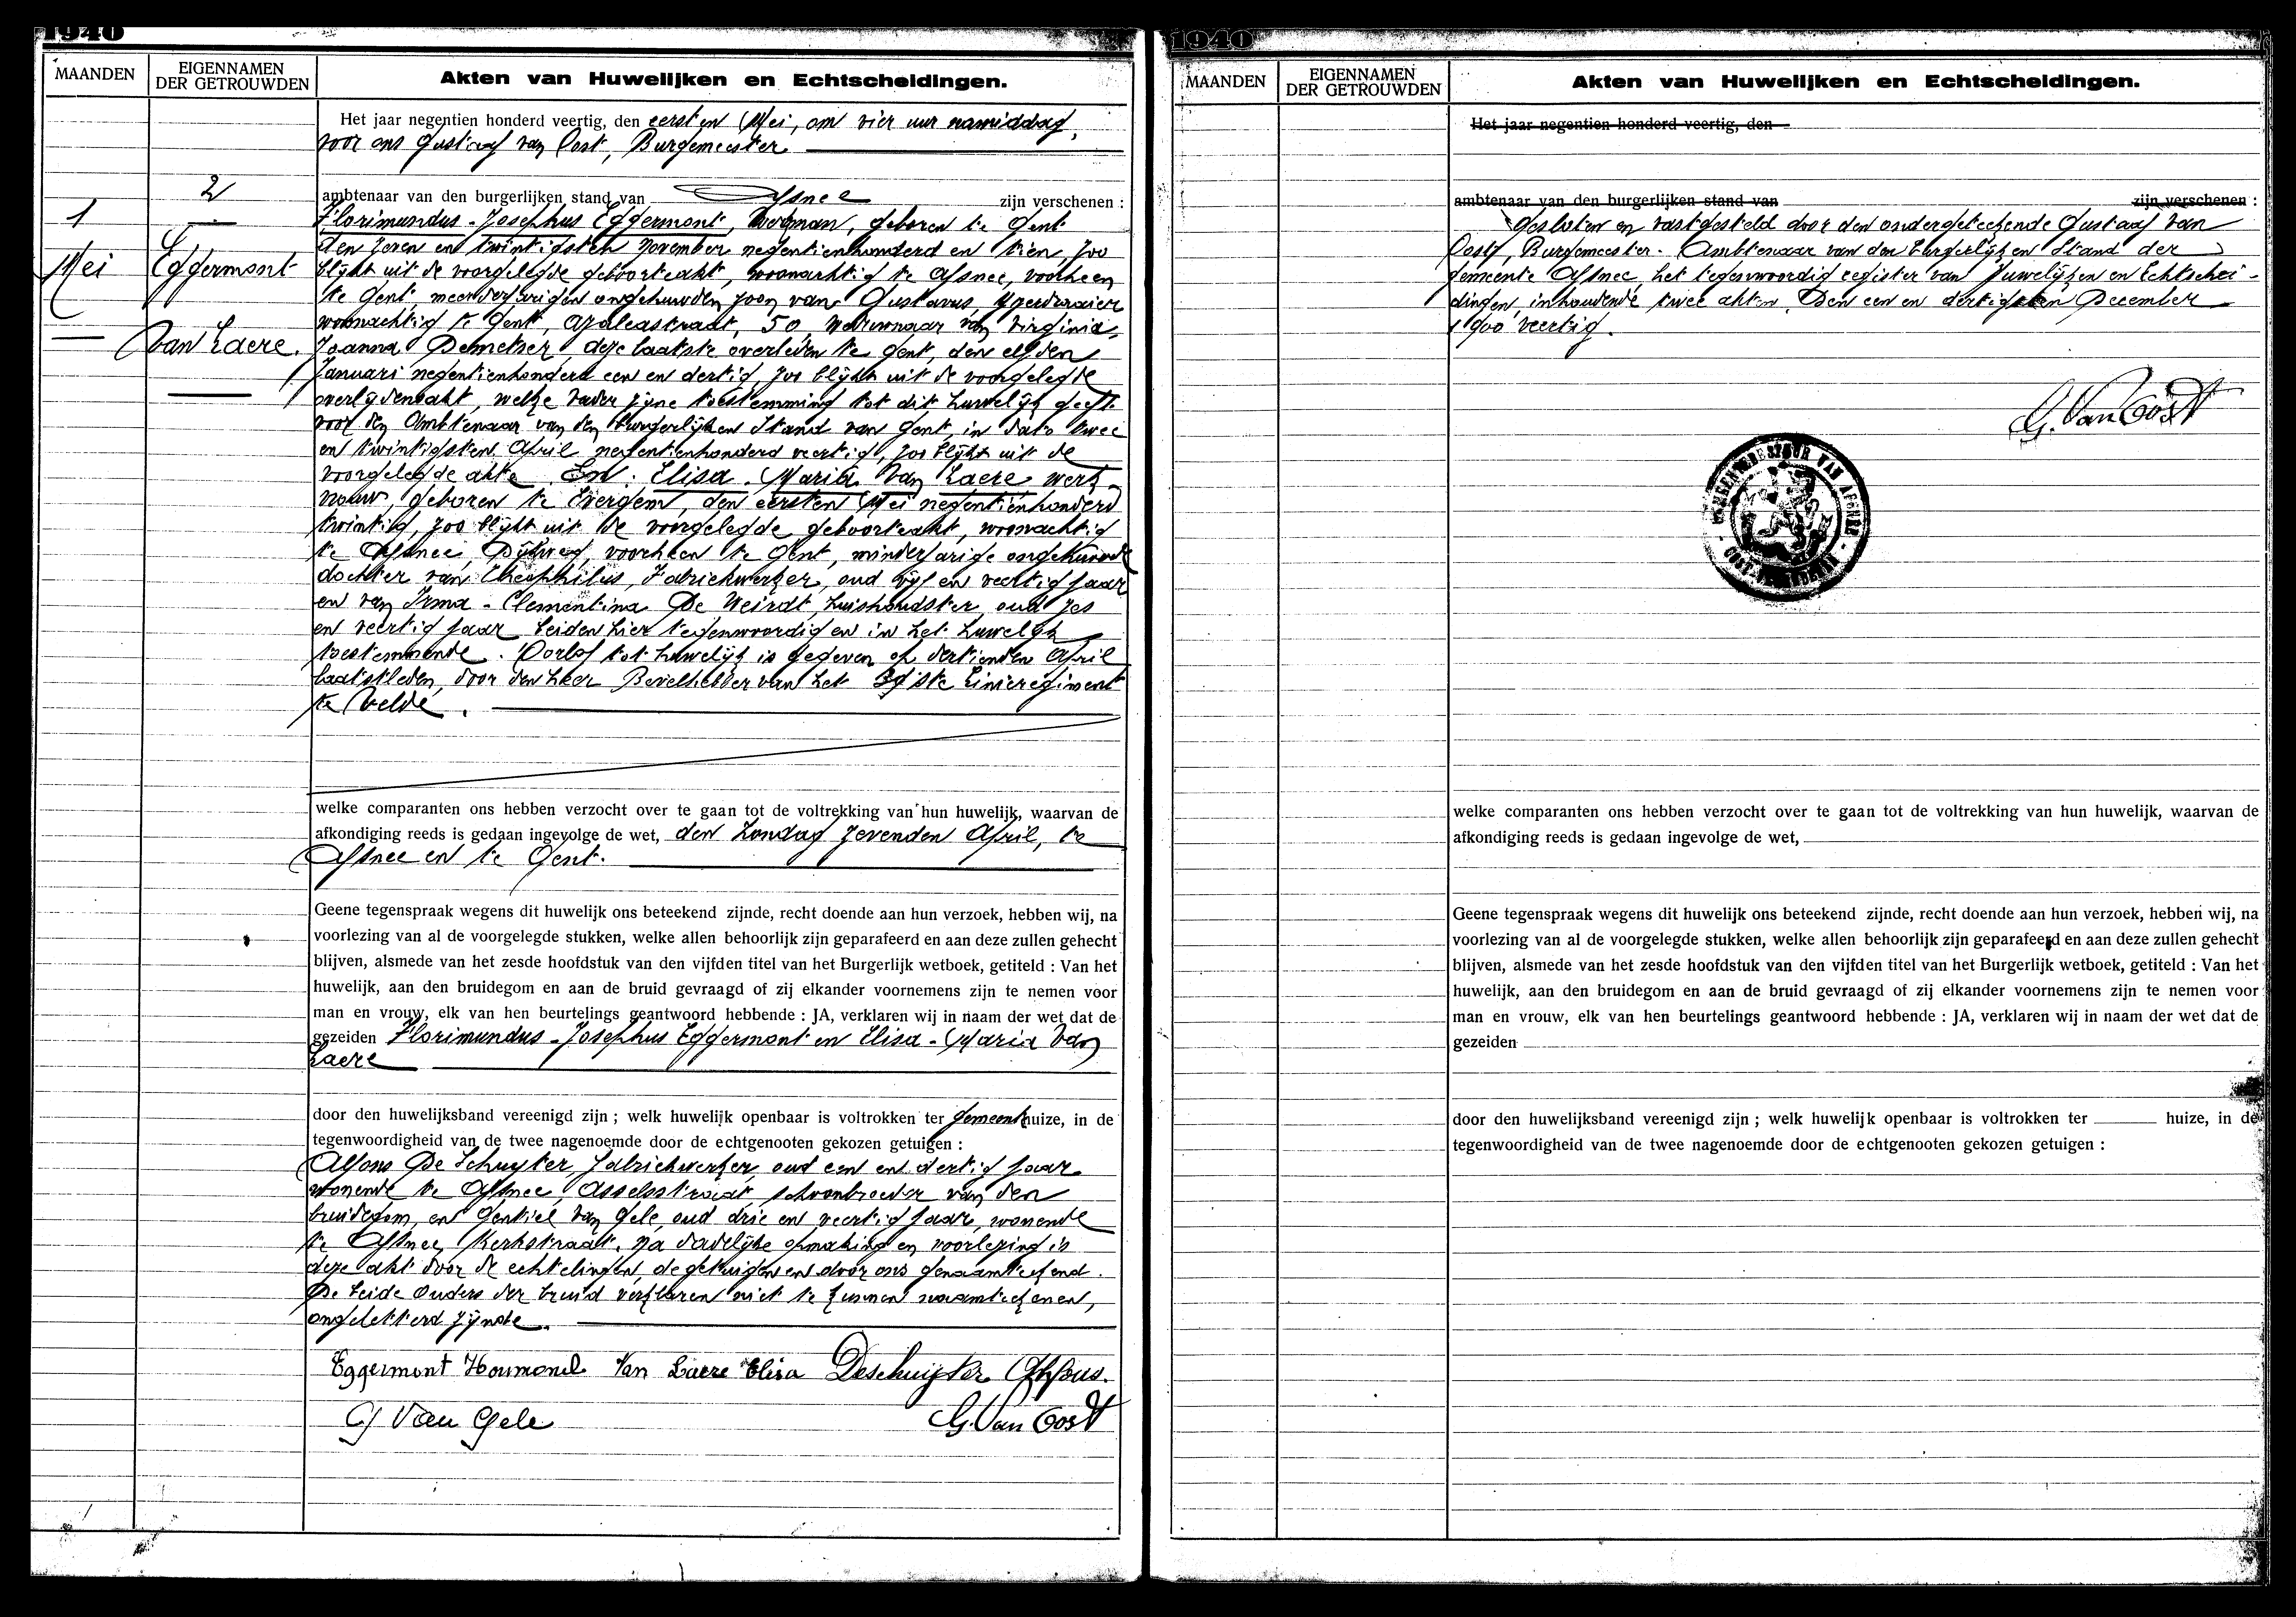 1940
MAANDEN
EIGENNAMEN
DER GETROUWDEN
Akten van Huwelijken en Echtscheidingen.
Het jaar negentien honderd veertig, den eersten Mei, om vier uur namiddag,
voor ons Gustaaf van Oost, Burgemeester
2
1
Mei
Eggermont
Van Laere.
ambtenaar van den burgerlijken stand van Afsnee zijn verschenen :
Florimundus-Josephus Eggermont, werkman, geboren te Gent
den zeven en twintigsten november negentienhonderd en tien, zoo
blijkt uit de voorgelegde geboorteakt, woonachtig te Afsnee, voorheen
te Gent, meerderjarigen ongehuwden zoon van Gustavus, ijzerdraaier
woonachtig te Gent, Azaleastraat, 50, weduwnaar van Virginia-
Joanna Demetser, deze laatste overleden te Gent, den elfden
Januari negentienhonderd een en dertig, zoo blijkt uit de voorgelegde
overlijdensakt, welke vader zijne toestemming tot dit huwelijk geeft
voor den Ambtenaar van den burgerlijken Stand van Gent, in dato twee
en twintigsten April negentienhonderd veertig, zoo blijkt uit de
voorgelegde akte. En: Elisa-Maria Van Laere, werk-
vrouw, geboren te Evergem, den eersten Mei negentienhonderd
twintig, zoo blijkt uit de voorgelegde geboorteakt, woonachtig
te Afsnee, Dijkweg, voorheen te Gent, minderjarige ongehuwde
dochter van Theophilus, Fabriekwerker, oud vijf en veertig jaar
en van Irma-Clementina De Weirdt, huishoudster, oud zes
en veertig jaar beiden hier tegenwoordig en in het huwelijk
toestemmende. Oorlof tot huwelijk is gegeven op dertienden April
laatstleden, door den heer Bevelhebber van het 39ste Linieregiment
te Velde.
welke comparanten ons hebben verzocht over te gaan tot de voltrekking van hun huwelijk, waarvan de
afkondiging reeds is gedaan ingevolge de wet, den Zondag zevenden April, te
Afsnee en te Gent.
Geene tegenspraak wegens dit huwelijk ons beteekend zijnde, recht doende aan hun verzoek, hebben wij, na
voorlezing van al de voorgelegde stukken, welke allen behoorlijk zijn geparafeerd en aan deze zullen gehecht
blijven, alsmede van het zesde hoofdstuk van den vijfden titel van het Burgerlijk wetboek, getiteld : Van het
huwelijk, aan den bruidegom en aan de bruid gevraagd of zij elkander voornemens zijn te nemen voor
man en vrouw, elk van hen beurtelings geantwoord hebbende : JA, verklaren wij in naam der wet dat de
gezeiden Florimundus-Josephus Eggermont en Elisa-Maria Van
Laere
door den huwelijksband vereenigd zijn ; welk huwelijk openbaar is voltrokken ter gemeentehuize, in de
tegenwoordigheid van de twee nagenoemde door de echtgenooten gekozen getuigen :
Alfons De Schuyter, fabriekwerker, oud een en dertig jaar
wonende te Afsnee, Asselsstraat, schoonbroeder van den
bruidegom, en Gentiel Van Gele, oud drie en veertig jaar, wonende
te Afsnee, Kerkstraat. Na dadelijke opmaking en voorlezing is
deze akt door de echtelingen, de getuigen en door ons genaamteekend.
De beide ouders der bruid verklaren niet te kunnen naamteekenen,
ongeletterd zijnde.
Eggermont Florimond Van Laere Elisa Deschuijter Alfons.
G Van Gele
G. Van Oost
1940
MAANDEN
EIGENNAMEN
DER GETROUWDEN
Akten van Huwelijken en Echtscheidingen.
Het jaar negentien honderd veertig, den
ambtenaar van den burgerlijken stand van zijn verschenen :
Gesloten en vastgesteld door den ondergeteekende Gustaaf Van
Oost, Burgemeester-Ambtenaar van den burgerlijken Stand der
gemeente Afsnee, het tegenwoordig register van Huwelijken en Echtschei-
dingen, inhoudende twee akten. Den een en dertigsten December
1900 veertig.
G. Van Oost
GEMEENTEBESTUUR VAN AFSNEE
OOST-VLAANDEREN
welke comparanten ons hebben verzocht over te gaan tot de voltrekking van hun huwelijk, waarvan de
afkondiging reeds is gedaan ingevolge de wet,
Geene tegenspraak wegens dit huwelijk ons beteekend zijnde, recht doende aan hun verzoek, hebben wij, na
voorlezing van al de voorgelegde stukken, welke allen behoorlijk zijn geparafeerd en aan deze zullen gehecht
blijven, alsmede van het zesde hoofdstuk van den vijfden titel van het Burgerlijk wetboek, getiteld : Van het
huwelijk, aan den bruidegom en aan de bruid gevraagd of zij elkander voornemens zijn te nemen voor
man en vrouw, elk van hen beurtelings geantwoord hebbende : JA, verklaren wij in naam der wet dat de
gezeiden
door den huwelijksband vereenigd zijn ; welk huwelijk openbaar is voltrokken ter huize, in de
tegenwoordigheid van de twee nagenoemde door de echtgenooten gekozen getuigen :